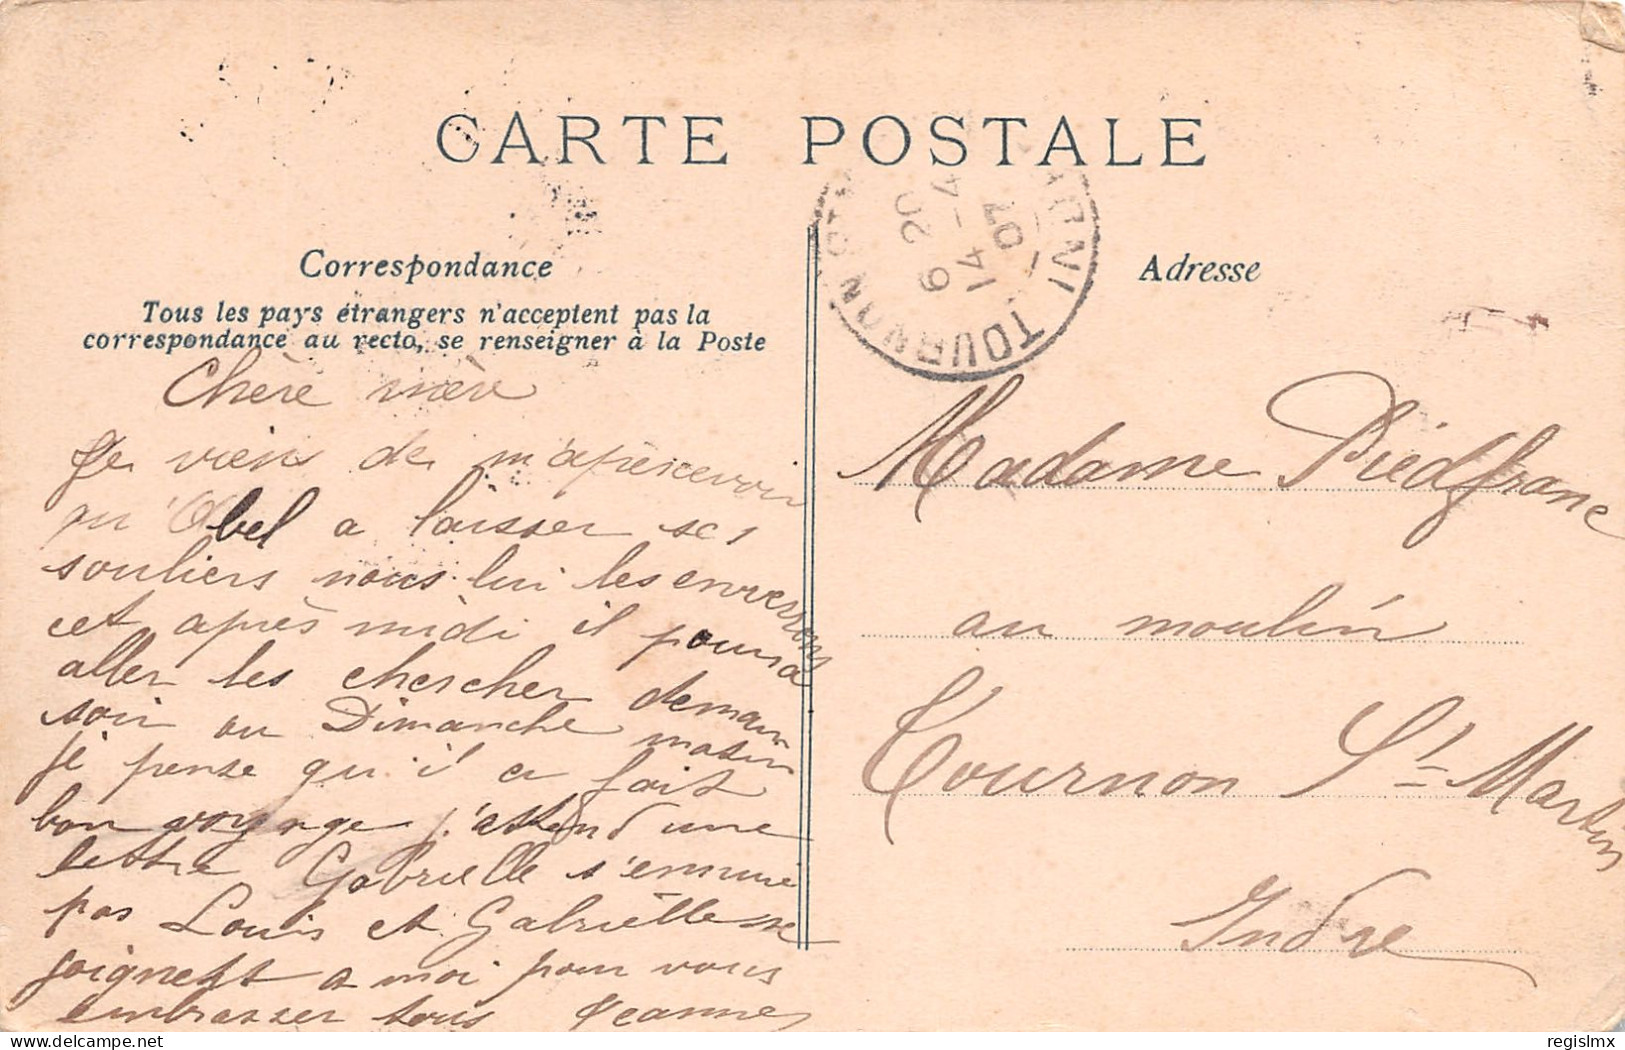 CARTE POSTALE
Correspondance
Tous les pays étrangers n'acceptent pas la
correspondance au recto, se renseigner à la Poste
Chère mère
Je viens de m'apèrcevoir
qu'Abel a laisser ses
souliers nous lui les enverrons
et après midi il poura
aller les chercher demain
soir ou Dimanche matin
je pense qu'il a fait
bon voyage j'attend une
lettre Gabrielle s'ennuie
pas Louis et Gabriëlle se
joignent a moi pour vous
embrasser tous Jeanne
TOURNON ST MARTIN
6 20
14 - 4
07
INDRE
Adresse
Madame Piédfranc
au moulin
Tournon St Martin
Indre
regislmx
delcampe.net